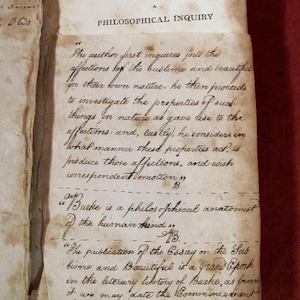 A
PHILOSOPHICAL INQUIRY
"The author first inquires into the
affections of the sublime and beautiful
in their own nature; he then proceeds
to investigate the properties of such
things in nature as gave use to the
affections: and, lastly, he considers in
what manner these properties act, to
produce those affections, and each
correspondent emotion"
B.
"Burke is a philosophical anatomist
of the human mind"
B.
"The publication of the Essay on the Sub
lime and Beautiful is a Grand Epoch
in the literary history of Burke, as from
it we may date the Commencement